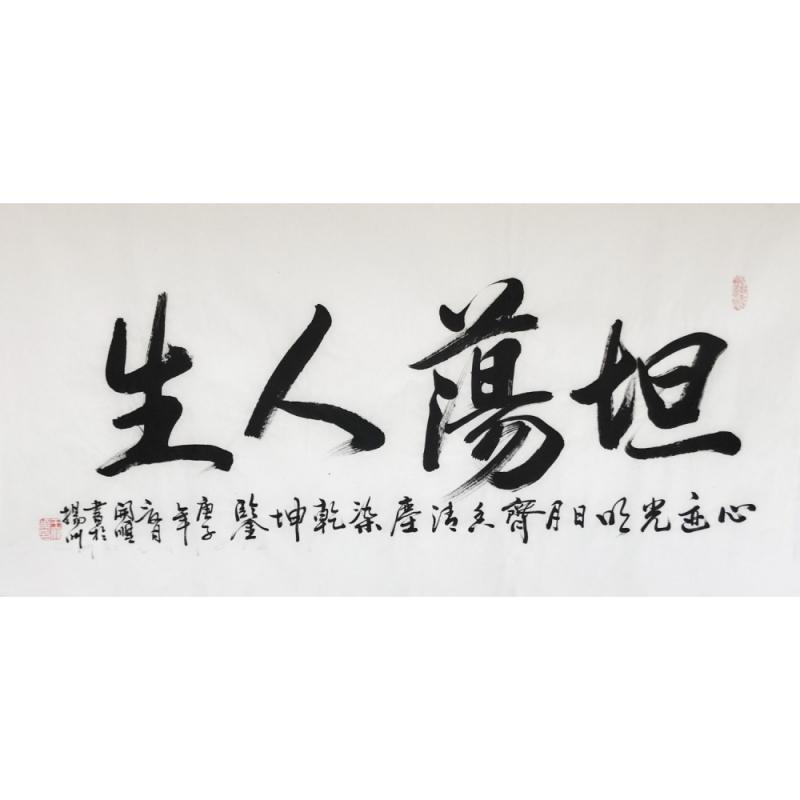 坦蕩人生
心迹光明日月齊
清塵染乾坤鑒
庚子年
月
書於
揚州